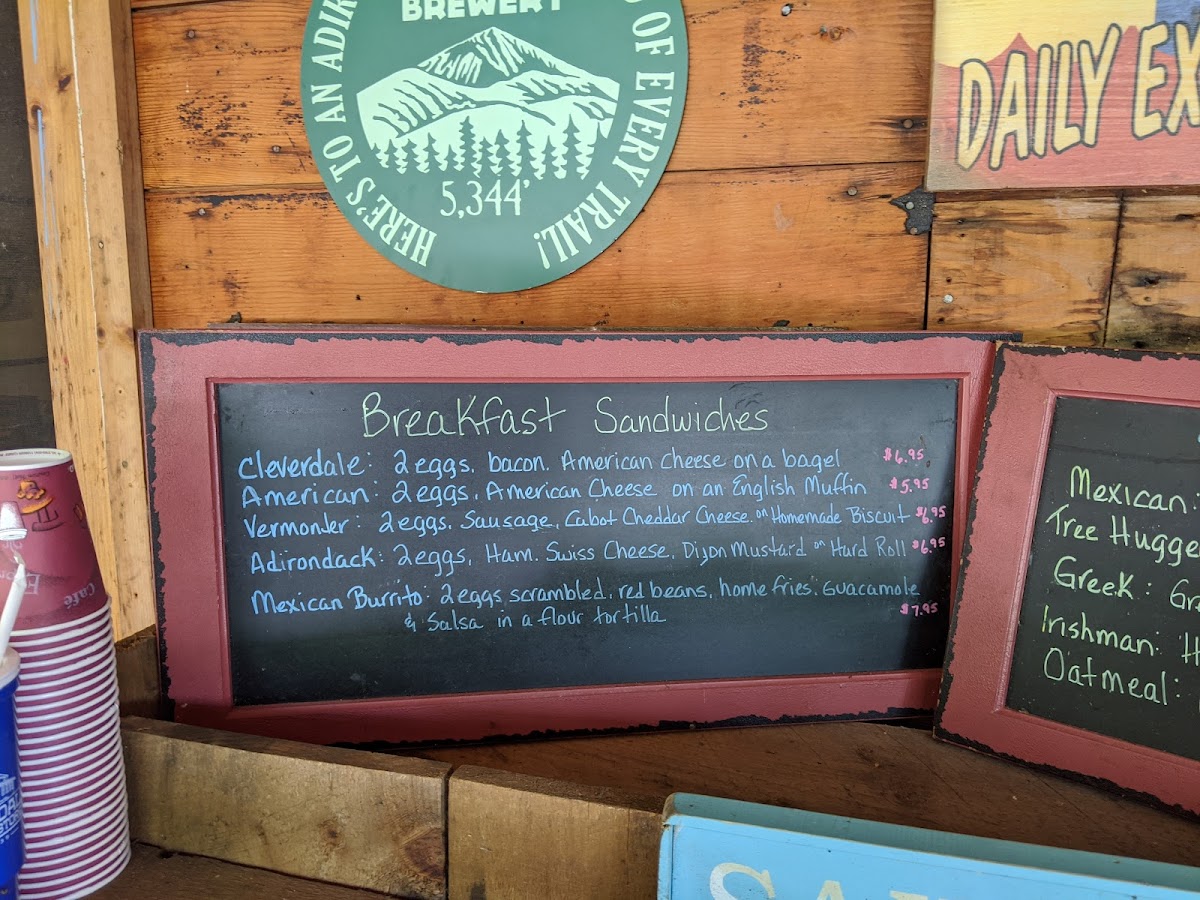 BREWERY
HERE'S TO AN
OF EVERY TRAIL!
5,344'
DAILY
Breakfast Sandwiches
Cleverdale: 2 eggs, bacon. American Cheese on a bagel $6.95
American: 2 eggs, American Cheese on an English Muffin $5.95
Vermonter: 2 eggs, Sausage, Cabot Cheddar Cheese. on Homemade Biscuit $6.95
Adirondack: 2 eggs, Ham. Swiss Cheese, Dijon Mustard on Hard Roll $6.95
Mexican Burrito: 2 eggs scrambled, red beans, home fries, Guacamole
& Salsa in a flour tortilla $7.95
Mexican:
Tree
Greek:
Irishman:
Oatmeal:
Café